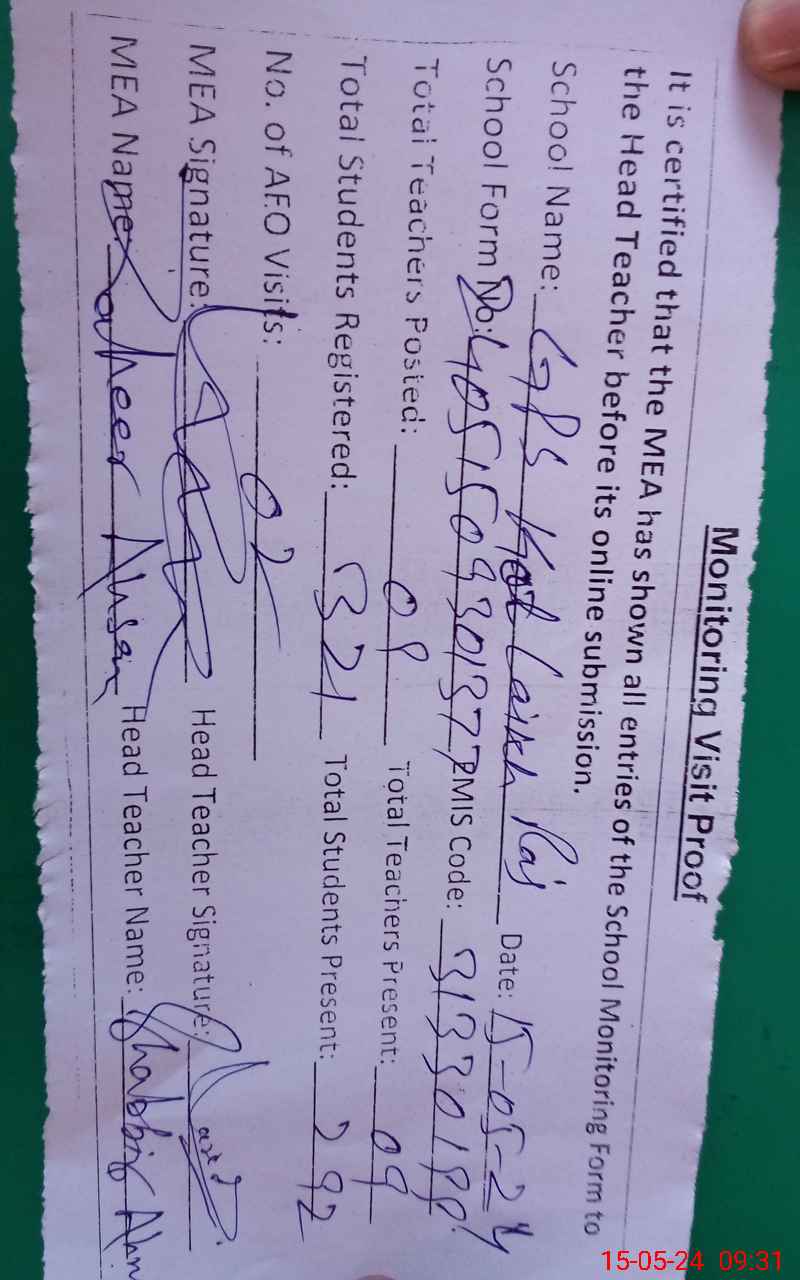 Monitoring Visit Proof
It is certified that the MEA has shown all entries of the School Monitoring Form to
the Head Teacher before its online submission.
School Name: GPS Kot Laikh Raj Date: 15-05-24
School Form No: D4051509301377 EMIS Code: 31330188
Total Teachers Posted: 09 Total Teachers Present: 09
Total Students Registered: 321 Total Students Present: 292
No. of AEO Visits: 02
MEA Signature: Head Teacher Signature:
MEA Name: Zaheer Ahsan Head Teacher Name: Shabbir
15-05-24 09:31